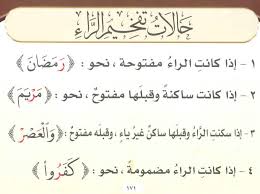 حَالَاتُ تَفْخِيمِ الرَّاءِ
١ - إذا كانتِ الراءُ مفتوحة ، نحو : ﴿ رَمَضَانَ ﴾
٢ - إذا كانت ساكنةً وقبلها مفتوحٌ ، نحو : ﴿ مَرْيَمَ ﴾
٣ - إذا سكنتِ الرَّاءُ وقبلَها ساكنٌ غيرُ ياءٍ ، وقبله مفتوحٌ : ﴿ وَالْعَصْرِ ﴾
٤ - إذا كانت الراءُ مضمومةً ، نحو : ﴿ كَفَرُواْ ﴾
١٧١